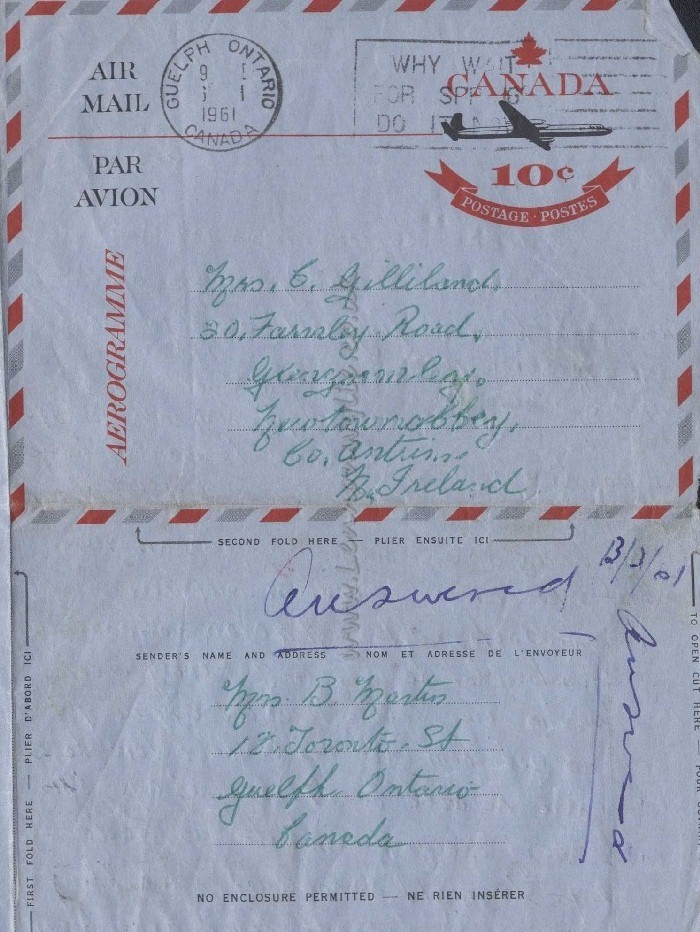 AIR
MAIL
GUELPH ONTARIO
9 I
1
1961
CANADA
WHY WAIT
FOR SPRING
DO IT NOW
CANADA
10¢
POSTAGE · POSTES
PAR
AVION
AEROGRAMME
Mrs. C. Gilliland,
30, Farnley Road,
Glengormley,
Newtownabbey,
Co. Antrim.
N. Ireland
SECOND FOLD HERE — PLIER ENSUITE ICI
Answered 13/3/61
SENDER'S NAME AND ADDRESS NOM ET ADRESSE DE L'ENVOYEUR
Mrs B Martin
12. Toronto. St
Guelph. Ontario
Canada
Answered
NO ENCLOSURE PERMITTED — NE RIEN INSÉRER
FIRST FOLD HERE — PLIER D'ABORD ICI
TO OPEN CUT HERE